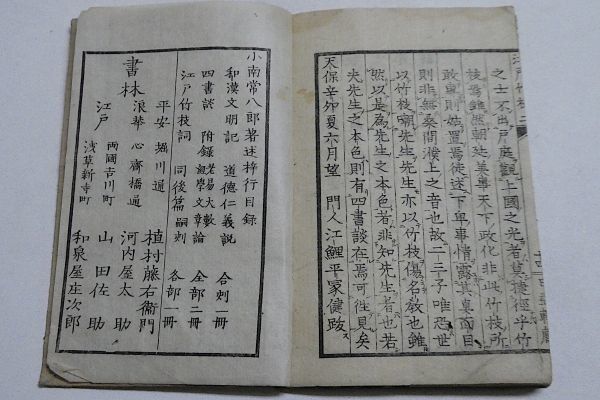 之士不出戸庭觀上國之光者莫捷徑乎竹
枝焉雖然朝廷美事天下政化非此竹枝所
敢與則姑置焉徒述下卑事情露其真面目
則非無桑間濮上之音也故二三子唯恐世
以竹枝嘲先生先生亦以竹枝傷名敎也雖
然以是為先生之本色者非知先生者也若
夫先生之本色則有四書談在焉可徃見矣
天保辛卯夏六月望 門人江鯉平冢健跋
小南常八郎著述梓行目録
和漢文明記 道德仁義説 合刻一冊
四書談 附録 老易大數 經學文章論 全部二冊
江戸竹枝詞 同後篇嗣刻 各部一冊
書林
平安 堀川通 植村藤右衞門
浪華 心齋橋通 河内屋太助
江戸 両國吉川町 山田佐助
浅草新寺町 和泉屋庄次郎